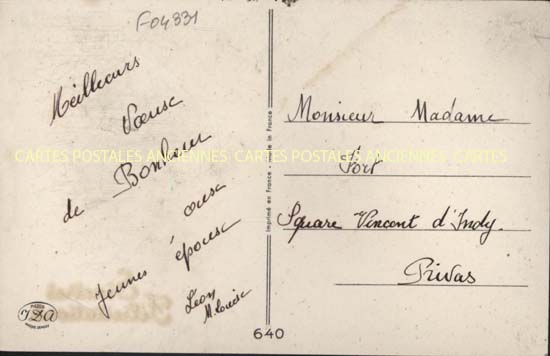 F04331
Meilleurs
Voeux
de Bonheur
aux
jeunes époux
Léon
M. Louise
CARTES POSTALES ANCIENNES CARTES POSTALES ANCIENNES
Imprimé en France - made in France
Monsieur Madame
Fort
Square Vincent d'Indy.
Privas
PARIS
IDA
640